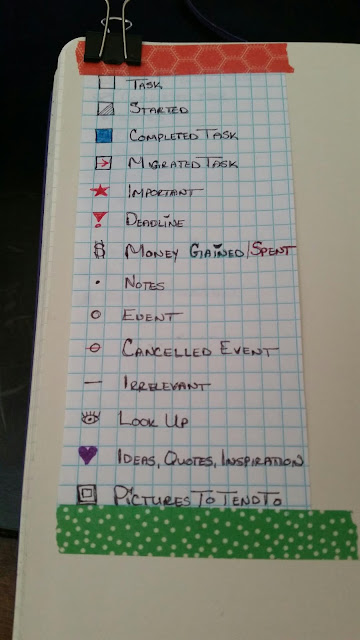 Task
Started
Completed Task
Migrated Task
Important
Deadline
$ Money Gained/Spent
Notes
Event
Cancelled Event
Irrelevant
Look Up
Ideas, Quotes, Inspiration
Pictures To Tend To